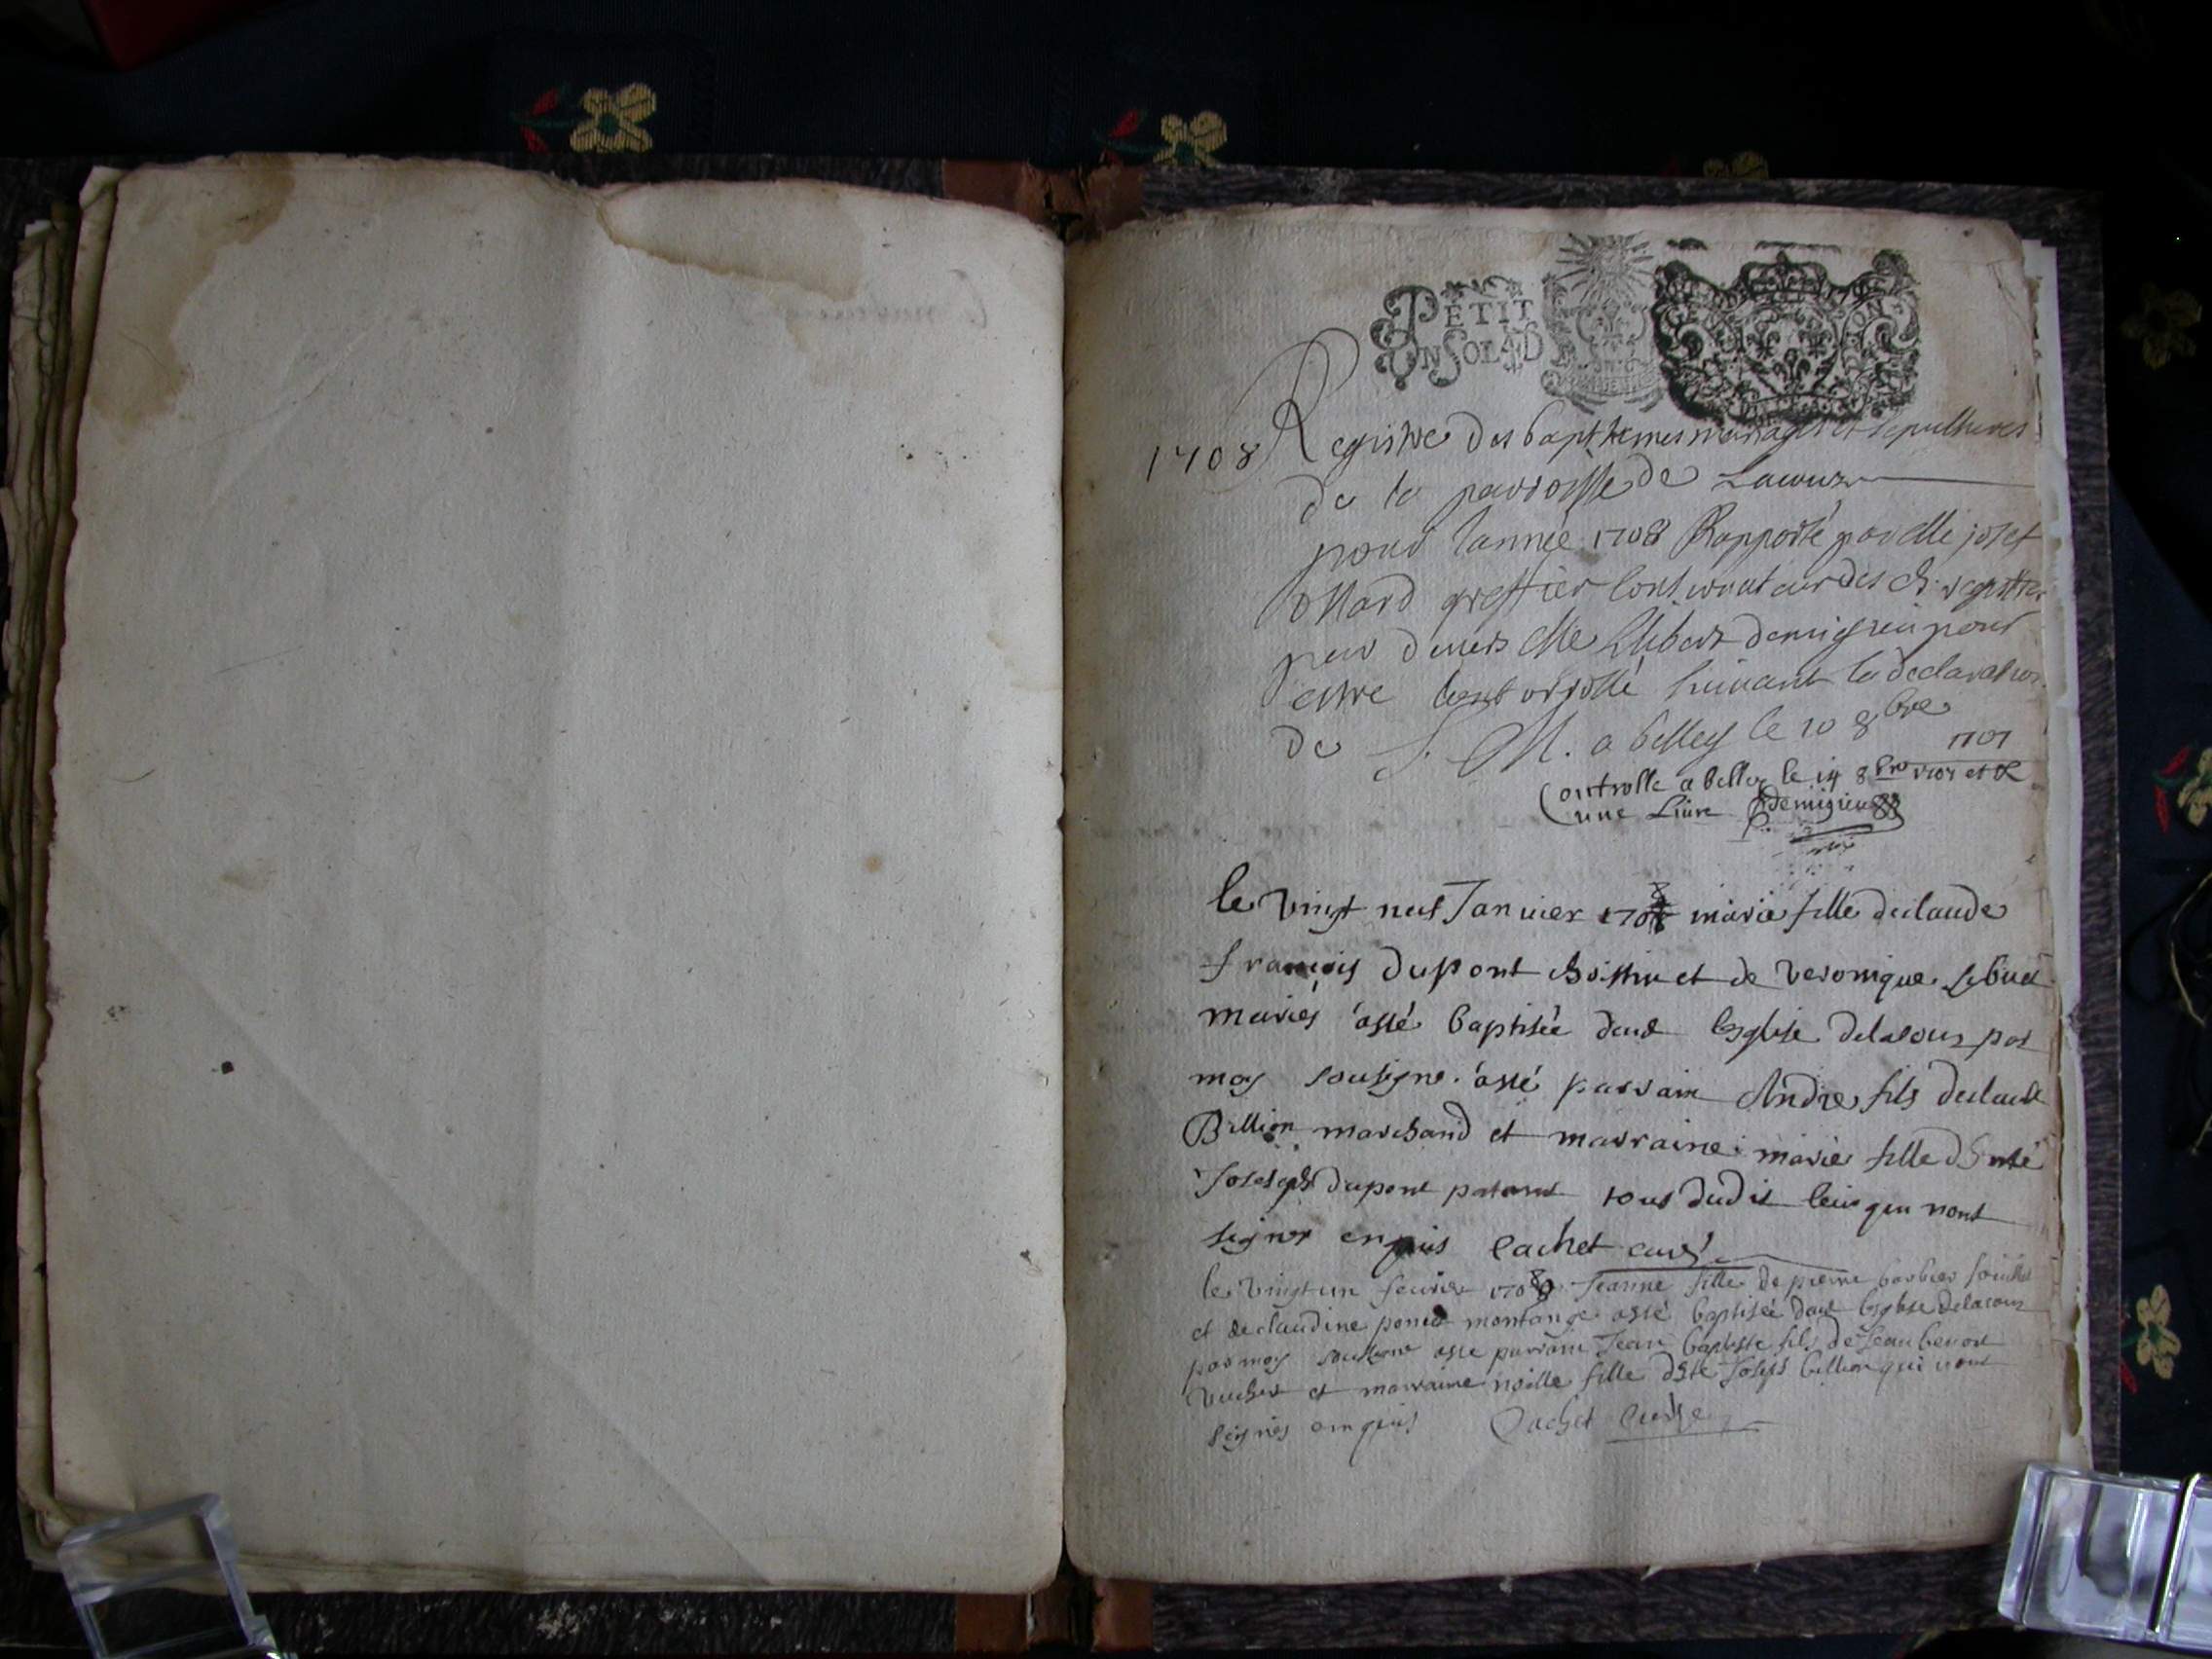 PETIT
UN SOL 4 D
GENERATION
1708 Registre des bapthemes mariages et sepulthures
de la parroisse de Lacoux
pour lannée 1708 Rapporté par Me josef
greffier Conservateur des dts registres
par devers Me demigieu pour
estre controllé suivant la declaration
de S. M. a belley le 10 8bre
1707
Controlle a belley le 14 8bre 1707 et R
une Livre Demigieu
le vingt neuf Janvier 1708 marie fille declaude
françois dupont et de veronique
mariés a esté baptisée dans leglise delacoux par
moy sousigné a esté parrain Andre fils declaude
Billion marchand et marraine marie fille dhte
Joseph dupont tous dudit lieu qui nont
signer enquis Cachet curé
le vingt un fevrier 1708 Jeanne fille de pierre barbier
et de claudine poncet montange a esté baptisée dans leglise delacoux
par moy sousigné a esté parrain Jean baptiste fils de Jean benoit
et marraine fille dhte Joseph billion qui nont
signés enquis Cachet Curé